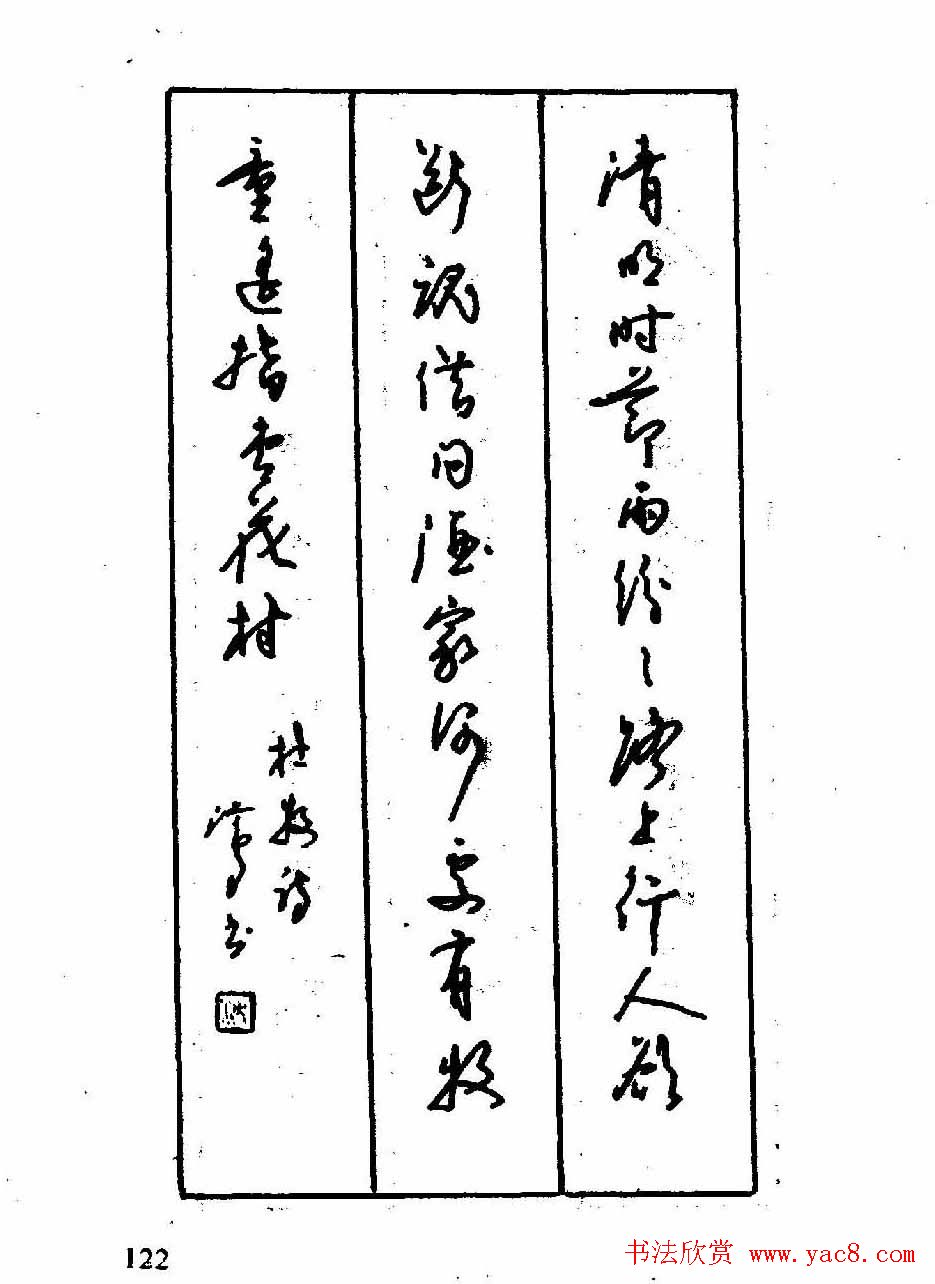 清明时节雨纷々路上行人欲
断魂借问酒家何处有牧
童遥指杏花村
杜牧诗
书
122
书法欣赏 www.yac8.com